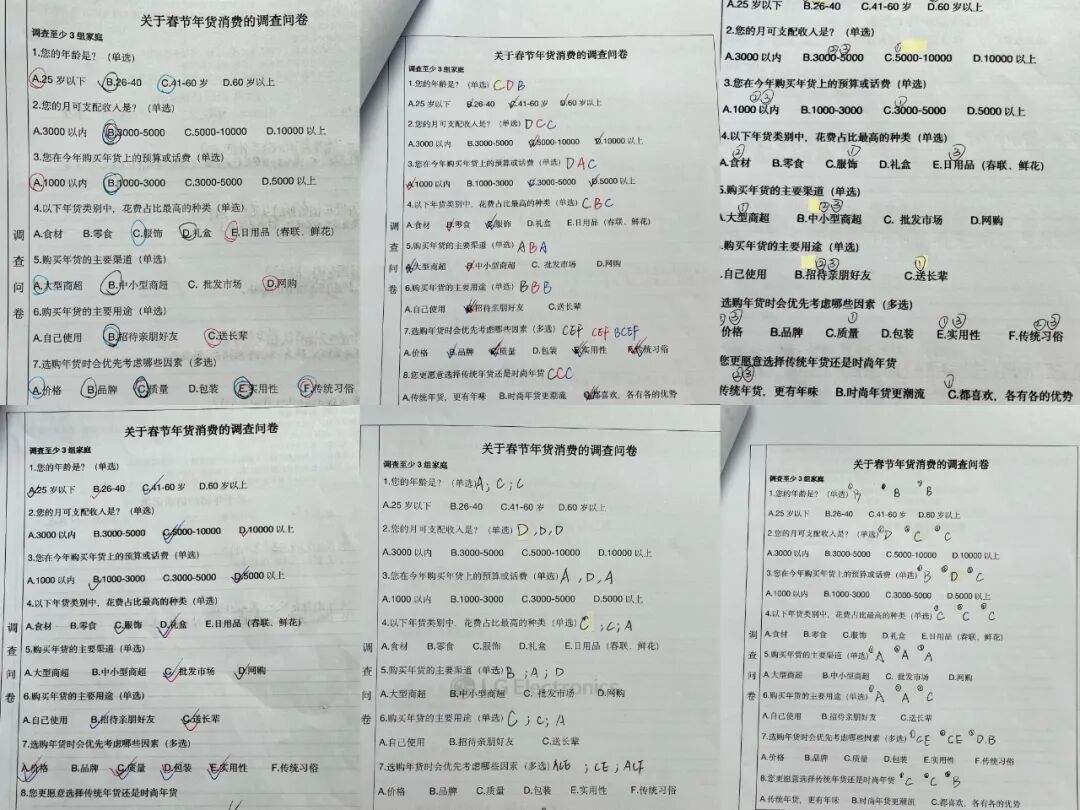 关于春节年货消费的调查问卷
调查至少 3 组家庭
1.您的年龄是？（单选）
A.25 岁以下 B.26-40 C.41-60 岁 D.60 岁以上
2.您的月可支配收入是？（单选）
A.3000 以内 B.3000-5000 C.5000-10000 D.10000 以上
3.您在今年购买年货上的预算或话费（单选）
A.1000 以内 B.1000-3000 C.3000-5000 D.5000 以上
4.以下年货类别中，花费占比最高的种类（单选）
A.食材 B.零食 C.服饰 D.礼盒 E.日用品（春联、鲜花）
5.购买年货的主要渠道（单选）
A.大型商超 B.中小型商超 C. 批发市场 D.网购
6.购买年货的主要用途（单选）
A.自己使用 B.招待亲朋好友 C.送长辈
7.选购年货时会优先考虑哪些因素（多选）
A.价格 B.品牌 C.质量 D.包装 E.实用性 F.传统习俗
调查问卷
关于春节年货消费的调查问卷
调查至少 3 组家庭
1.您的年龄是？（单选）CDB
A.25 岁以下 B.26-40 C.41-60 岁 D.60 岁以上
2.您的月可支配收入是？（单选）DCC
A.3000 以内 B.3000-5000 C.5000-10000 D.10000 以上
3.您在今年购买年货上的预算或话费（单选）DAC
A.1000 以内 B.1000-3000 C.3000-5000 D.5000 以上
4.以下年货类别中，花费占比最高的种类（单选）CBC
A.食材 B.零食 C.服饰 D.礼盒 E.日用品（春联、鲜花）
5.购买年货的主要渠道（单选）ABA
A.大型商超 B.中小型商超 C. 批发市场 D.网购
6.购买年货的主要用途（单选）BBB
A.自己使用 B.招待亲朋好友 C.送长辈
7.选购年货时会优先考虑哪些因素（多选）CEF CEF BCEF
A.价格 B.品牌 C.质量 D.包装 E.实用性 F.传统习俗
8.您更愿意选择传统年货还是时尚年货 CCC
A.传统年货，更有年味 B.时尚年货更潮流 C.都喜欢，各有各的优势
调查问卷
A.25 岁以下 B.26-40 C.41-60 岁 D.60 岁以上
2.您的月可支配收入是？（单选）
②③
A.3000 以内 B.3000-5000 C.5000-10000 D.10000 以上
3.您在今年购买年货上的预算或话费（单选）
②③ ①
A.1000 以内 B.1000-3000 C.3000-5000 D.5000 以上
4.以下年货类别中，花费占比最高的种类（单选）
② ① ③
A.食材 B.零食 C.服饰 D.礼盒 E.日用品（春联、鲜花）
5.购买年货的主要渠道（单选）
① ②③
A.大型商超 B.中小型商超 C. 批发市场 D.网购
.购买年货的主要用途（单选）
②③ ①
.自己使用 B.招待亲朋好友 C.送长辈
选购年货时会优先考虑哪些因素（多选）
②③ ① ①③ ②③
价格 B.品牌 C.质量 D.包装 E.实用性 F.传统习俗
您更愿意选择传统年货还是时尚年货
②③ ①
传统年货，更有年味 B.时尚年货更潮流 C.都喜欢，各有各的优势
关于春节年货消费的调查问卷
调查至少 3 组家庭
1.您的年龄是？（单选）
A.25 岁以下 B.26-40 C.41-60 岁 D.60 岁以上
2.您的月可支配收入是？（单选）
A.3000 以内 B.3000-5000 C.5000-10000 D.10000 以上
3.您在今年购买年货上的预算或话费（单选）
A.1000 以内 B.1000-3000 C.3000-5000 D.5000 以上
4.以下年货类别中，花费占比最高的种类（单选）
A.食材 B.零食 C.服饰 D.礼盒 E.日用品（春联、鲜花）
5.购买年货的主要渠道（单选）
A.大型商超 B.中小型商超 C. 批发市场 D.网购
6.购买年货的主要用途（单选）
A.自己使用 B.招待亲朋好友 C.送长辈
7.选购年货时会优先考虑哪些因素（多选）
A.价格 B.品牌 C.质量 D.包装 E.实用性 F.传统习俗
8.您更愿意选择传统年货还是时尚年货
调查问卷
关于春节年货消费的调查问卷
调查至少 3 组家庭
1.您的年龄是？（单选）A；C；C
A.25 岁以下 B.26-40 C.41-60 岁 D.60 岁以上
2.您的月可支配收入是？（单选）D，D，D
A.3000 以内 B.3000-5000 C.5000-10000 D.10000 以上
3.您在今年购买年货上的预算或话费（单选）A，D，A
A.1000 以内 B.1000-3000 C.3000-5000 D.5000 以上
4.以下年货类别中，花费占比最高的种类（单选）C；C；A
A.食材 B.零食 C.服饰 D.礼盒 E.日用品（春联、鲜花）
5.购买年货的主要渠道（单选）B；A；D
LG Electronics
A.大型商超 B.中小型商超 C. 批发市场 D.网购
6.购买年货的主要用途（单选）C；C；A
A.自己使用 B.招待亲朋好友 C.送长辈
7.选购年货时会优先考虑哪些因素（多选）ACE；CE；ACF
A.价格 B.品牌 C.质量 D.包装 E.实用性 F.传统习俗
调查问卷
关于春节年货消费的调查问卷
调查至少 3 组家庭
1.您的年龄是？（单选）B B B
A.25 岁以下 B.26-40 C.41-60 岁 D.60 岁以上
2.您的月可支配收入是？（单选）D C C
A.3000 以内 B.3000-5000 C.5000-10000 D.10000 以上
3.您在今年购买年货上的预算或话费（单选）B D C
A.1000 以内 B.1000-3000 C.3000-5000 D.5000 以上
4.以下年货类别中，花费占比最高的种类（单选）C C C
A.食材 B.零食 C.服饰 D.礼盒 E.日用品（春联、鲜花）
5.购买年货的主要渠道（单选）A A A
A.大型商超 B.中小型商超 C. 批发市场 D.网购
6.购买年货的主要用途（单选）A A C
A.自己使用 B.招待亲朋好友 C.送长辈
7.选购年货时会优先考虑哪些因素（多选）CE CE D.B
A.价格 B.品牌 C.质量 D.包装 E.实用性 F.传统习俗
8.您更愿意选择传统年货还是时尚年货 C C B
A.传统年货，更有年味 B.时尚年货更潮流 C.都喜欢，各有各的优势
调查问卷